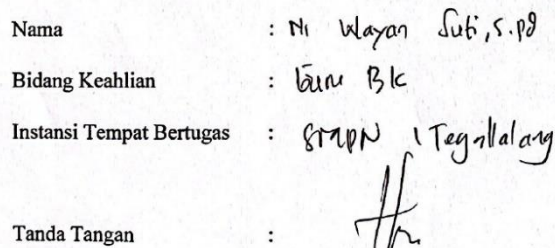 Nama : Ni Wayan Suti, S.Pd
Bidang Keahlian : Guru BK
Instansi Tempat Bertugas : SMPN 1 Tegallalang
Tanda Tangan :